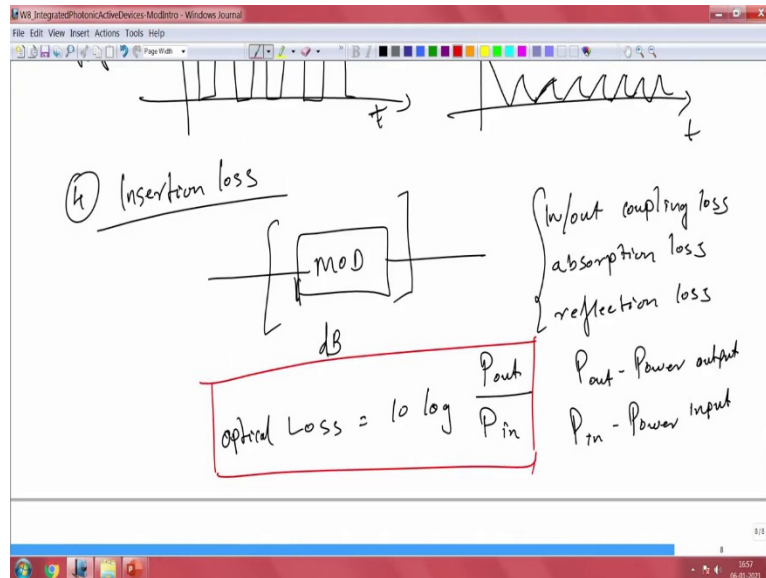 W8_IntegratedPhotonicActiveDevices-ModIntro - Windows Journal
File Edit View Insert Actions Tools Help
Page Width
B I
t
t
4 Insertion loss
MOD
dB
In/out coupling loss
absorption loss
reflection loss
Optical Loss = 10 log Pout / Pin
Pout - Power output
Pin - Power input
8/8
8
16:57
06-01-2021